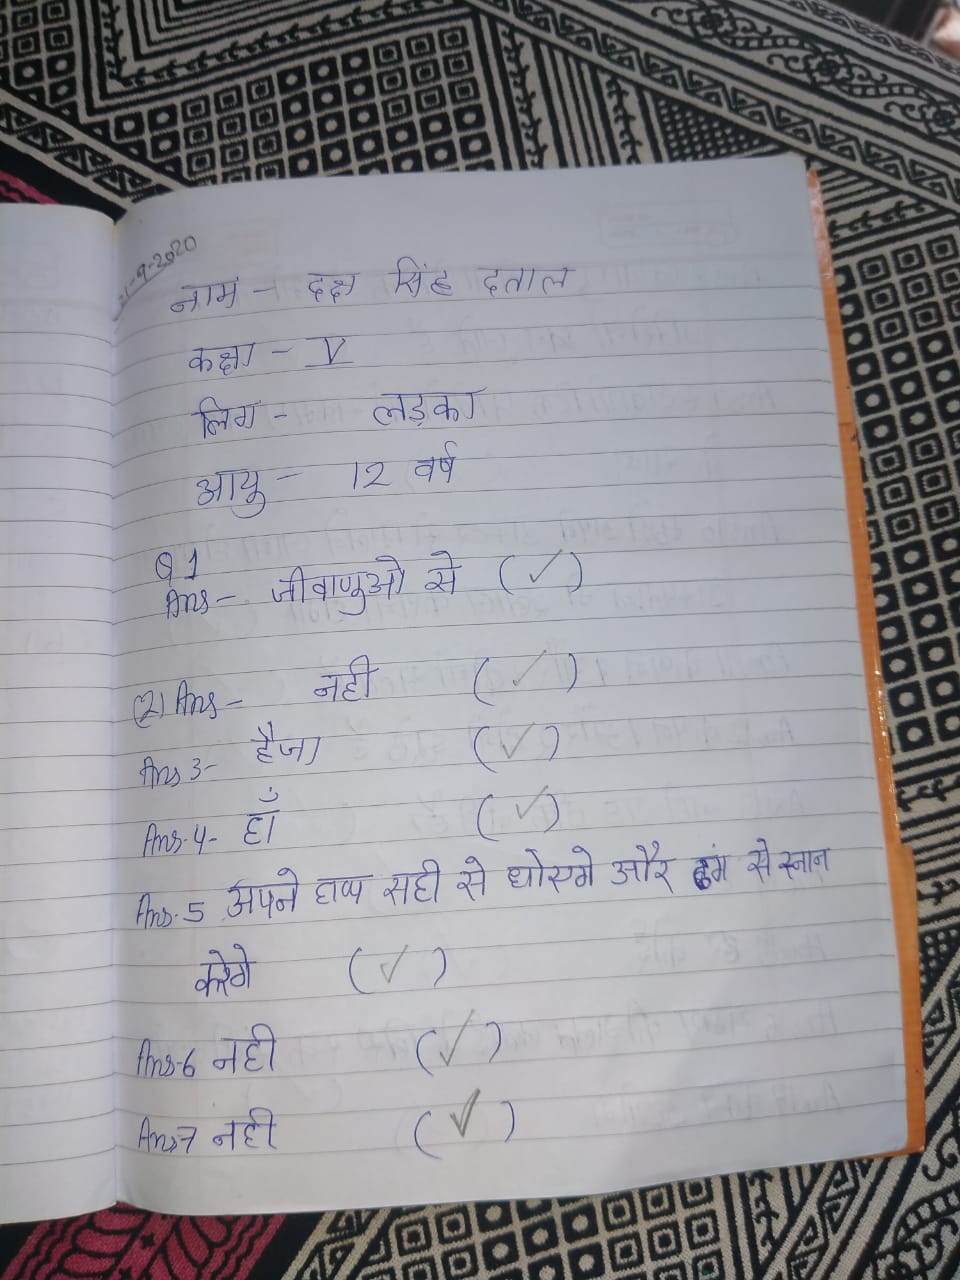 -9-2020
नाम - दक्ष सिंह दताल
कक्षा - V
लिग - लड़का
आयु - 12 वर्ष
Q 1
Ans - जीवाणुओ से (✓)
(2) Ans - नही (✓)
Ans 3- हैजा (✓)
Ans.4- हाँ (✓)
Ans.5 अपने हाथ सही से धोएगे और ढंग से स्नान
करेगे (✓)
Ans-6 नही (✓)
Ans7 नही (✓)